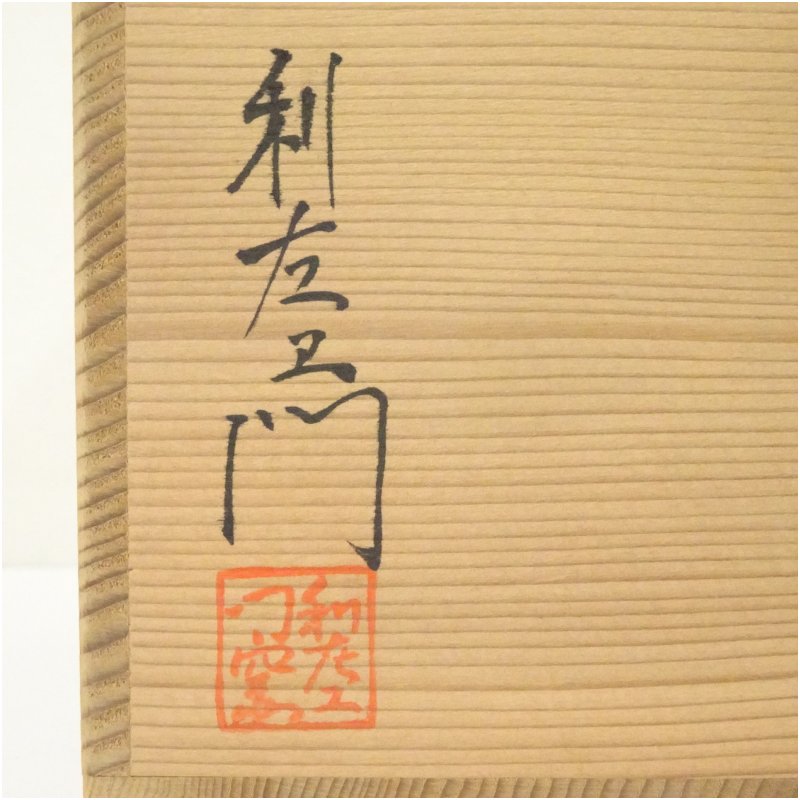 利左ヱ門
利左エ
門窯